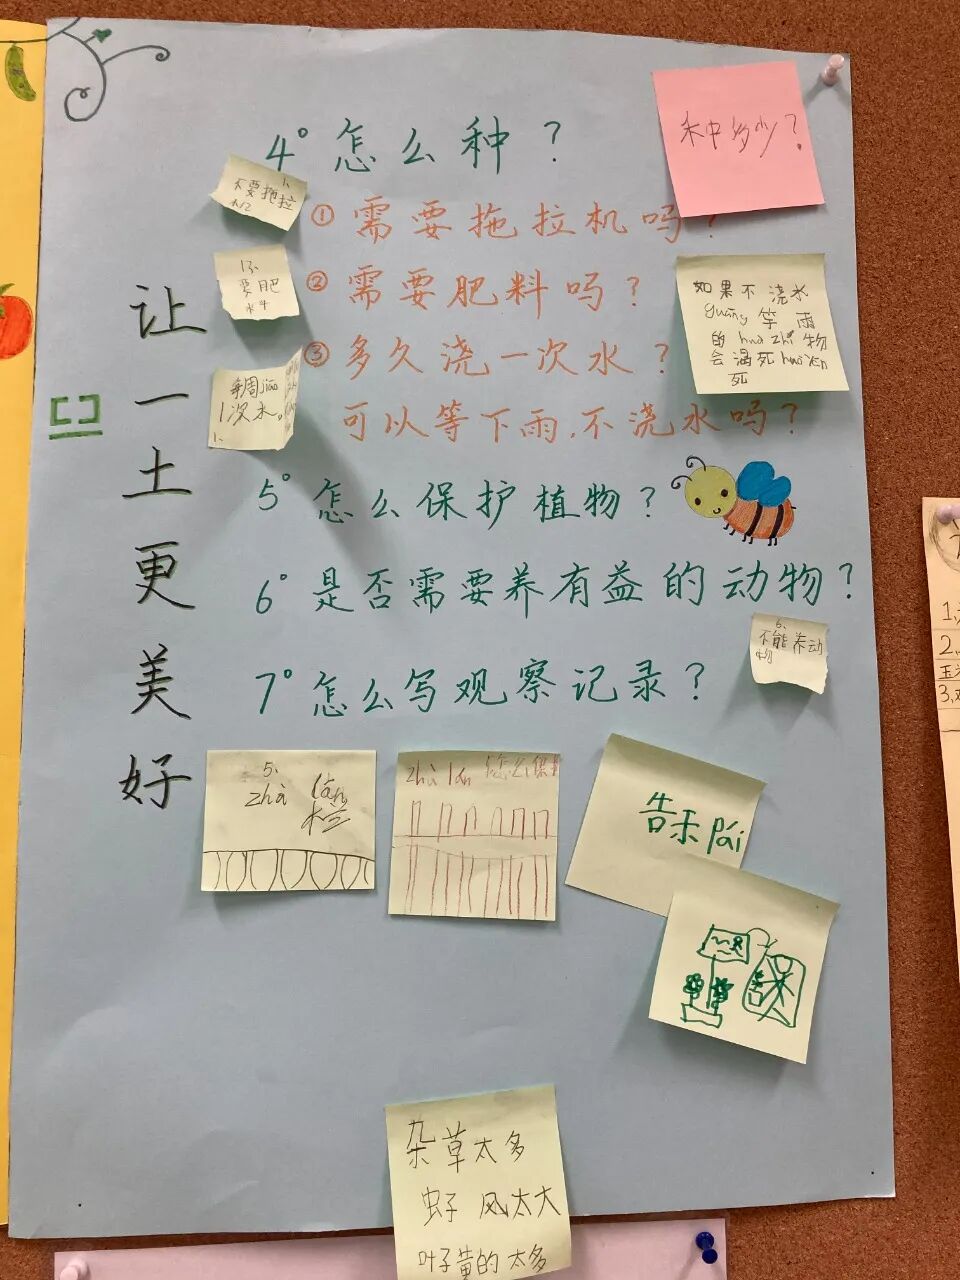 让一土更美好
4° 怎么种？
种多少？
不要拖拉
① 需要拖拉机吗？
要肥
② 需要肥料吗？
如果不浇水
guāng等雨
的huā zhí物
会渴死huò yān
死
③ 多久浇一次水？
每周jiāo
1次水。
可以等下雨，不浇水吗？
5° 怎么保护植物？
6° 是否需要养有益的动物？
6、
不能养动
物
7° 怎么写观察记录？
5、
zhà lán
zhà lán 5怎么保
告示pái
杂草太多
虫子 风太大
叶子黄的太多
1、
2、
3、